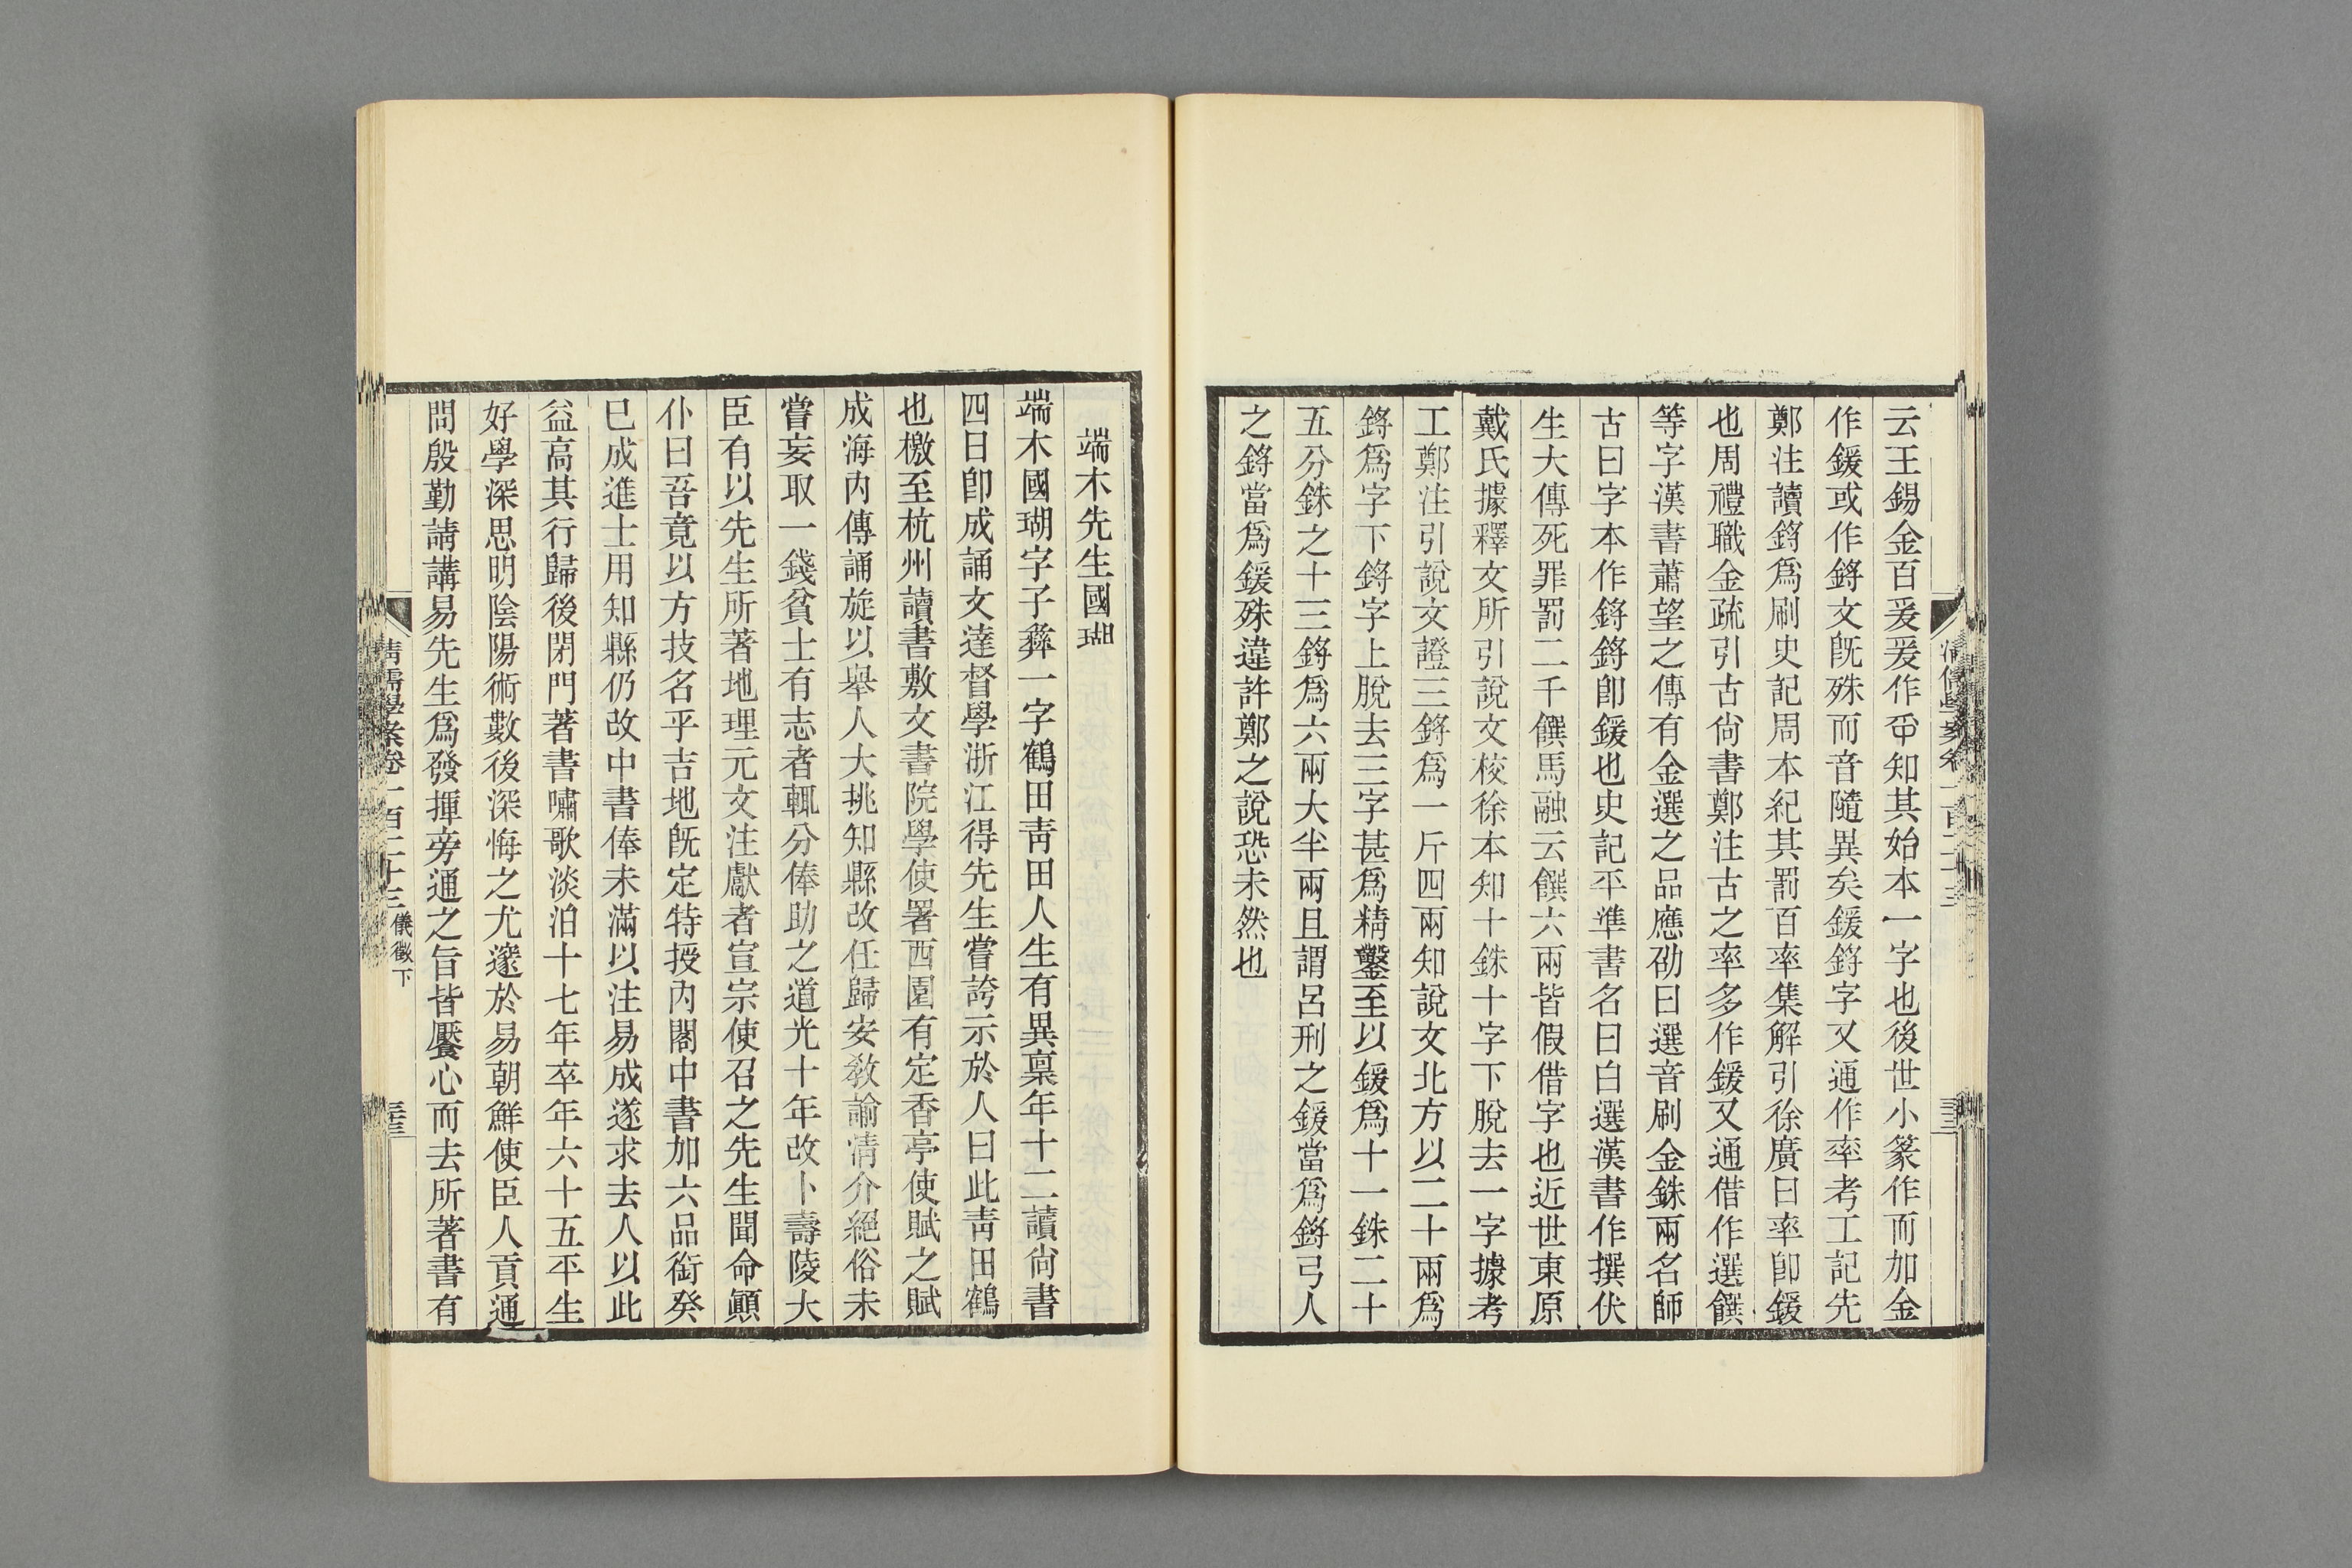 云王錫金百爰爰作𤔔知其始本一字也後世小篆作而加金
作鍰或作鋝文旣殊而音隨異矣鍰鋝字又通作率考工記先
鄭注讀鋝爲刷史記周本紀其罰百率集解引徐廣曰率卽鍰
也周禮職金疏引古尙書鄭注古之率多作鍰又通借作選饌
等字漢書蕭望之傳有金選之品應劭曰選音刷金銖兩名師
古曰字本作鋝鋝卽鍰也史記平準書名曰白選漢書作撰伏
生大傳死罪罰二千饌馬融云饌六兩皆假借字也近世東原
戴氏據釋文所引說文校徐本知十銖十字下脫去一字據考
工鄭注引說文證三鋝爲一斤四兩知說文北方以二十兩爲
鋝爲字下鋝字上脫去三字甚爲精鑿至以鍰爲十一銖二十
五分銖之十三鋝爲六兩大半兩且謂呂刑之鍰當爲鋝弓人
之鋝當爲鍰殊違許鄭之說恐未然也
端木先生國瑚
端木國瑚字子彝一字鶴田靑田人生有異稟年十二讀尙書
四日卽成誦文達督學浙江得先生嘗誇示於人曰此靑田鶴
也檄至杭州讀書敷文書院學使署西園有定香亭使賦之賦
成海內傳誦旋以舉人大挑知縣改任歸安敎諭淸介絕俗未
嘗妄取一錢貧士有志者輒分俸助之道光十年改卜壽陵大
臣有以先生所著地理元文注獻者宣宗使召之先生聞命顚
仆曰吾竟以方技名乎吉地旣定特授內閣中書加六品銜癸
巳成進士用知縣仍改中書俸未滿以注易成遂求去人以此
益高其行歸後閉門著書嘯歌淡泊十七年卒年六十五平生
好學深思明陰陽術數後深悔之尤邃於易朝鮮使臣人貢通
問殷勤請講易先生爲發揮旁通之旨皆饜心而去所著書有
淸儒學案卷一百二十三 儀徵下 三三